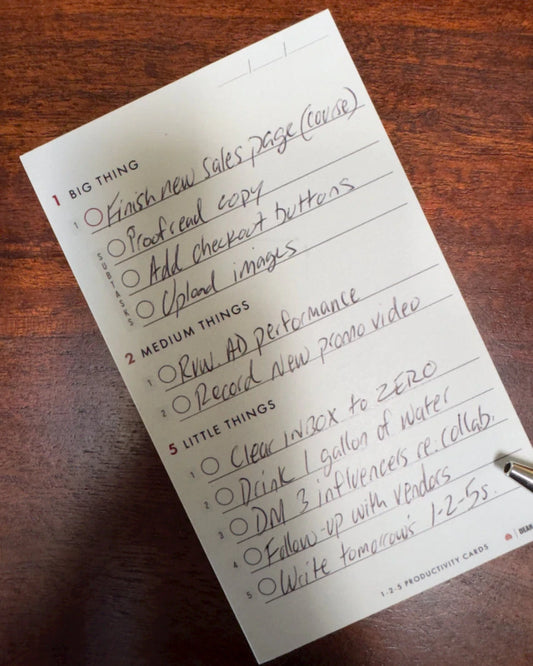 1 BIG THING
1 Finish new sales page (course)
SUBTASKS
Proofread copy
Add checkout buttons
Upload images
2 MEDIUM THINGS
1 Rvw. AD performance
2 Record New promo video
5 LITTLE THINGS
1 Clear INBOX to ZERO
2 Drink 1 gallon of water
3 DM 3 influencers re: collab.
4 Follow-up with vendors
5 Write tomorrow's 1-2-5s.
1-2-5 PRODUCTIVITY CARDS